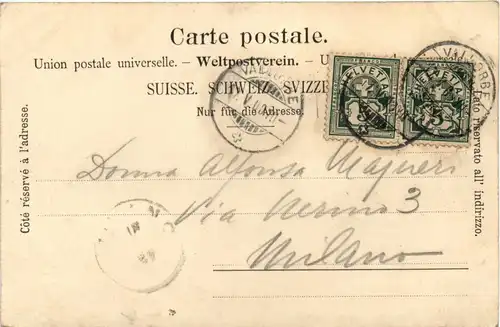 Carte postale.
Union postale universelle. – Weltpostverein. – U
SUISSE. SCHWEIZ. SVIZZE
Nur für die Adresse.
Côté réservé à l'adresse.
Lato riservato all' indirizzo.
VALLORBE
HELVETIA
HELVETIA
VALLORBE
Donna Alfonsa Magneri
Via Nerino 3
Milano